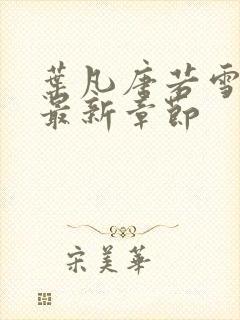 葉凡唐若雪
最新章節
宋美華